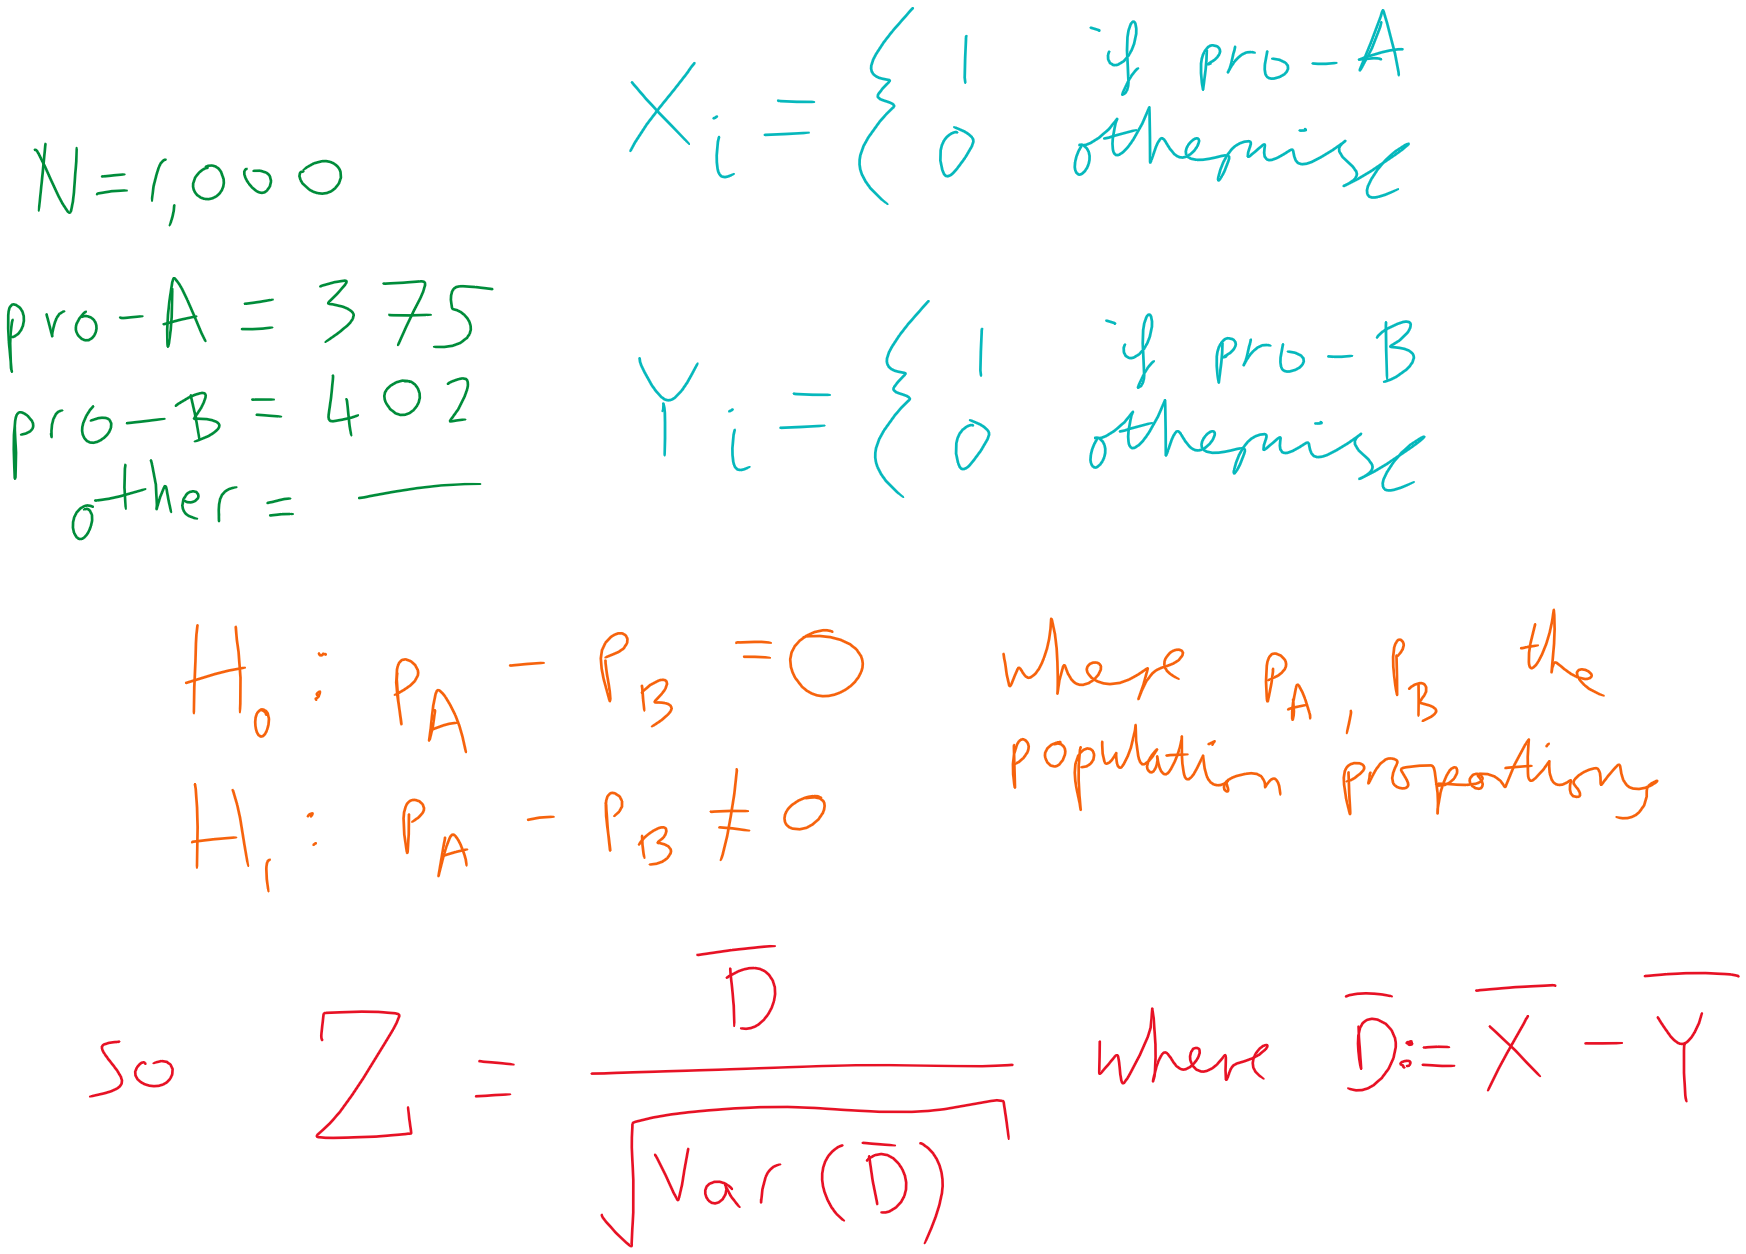 N = 1,000
pro-A = 375
pro-B = 402
other = —
X_i = { 1 if pro-A
0 otherwise
Y_i = { 1 if pro-B
0 otherwise
H_0 : P_A - P_B = 0 where P_A, P_B the
population proportions
H_1 : P_A - P_B ≠ 0
so Z = D̅ / √Var(D̅) where D̅ := X̅ - Y̅